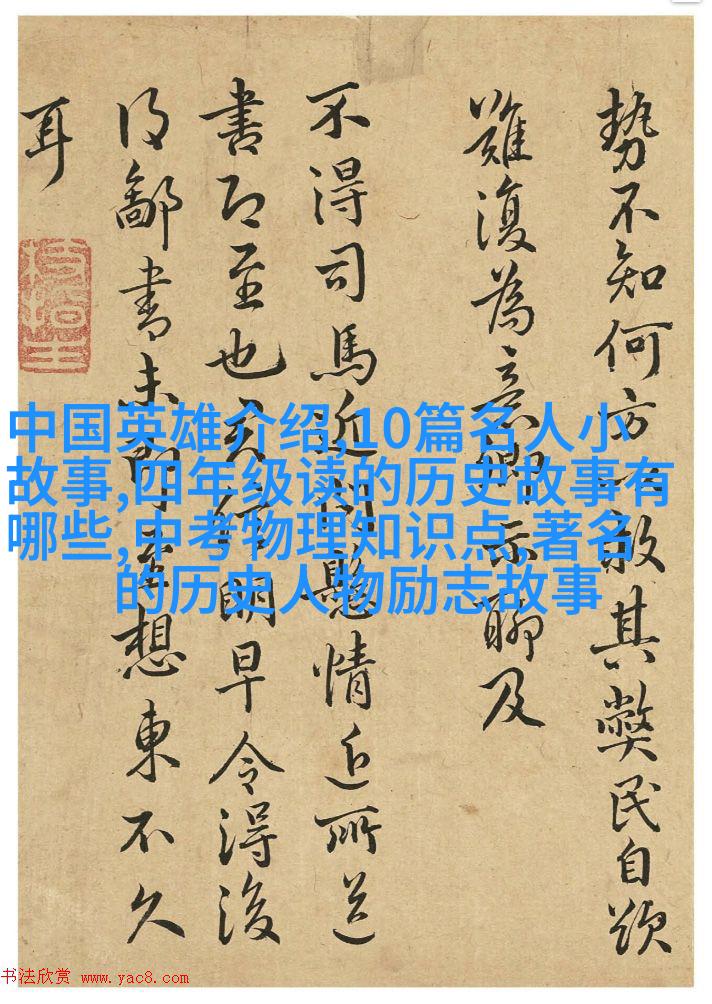 勢不知何方救其弊民自
難復為意卿示聊及
不得司馬近問懸情近所送
書即至也朗早令得後
得鄙書未想東不久
耳
中国英雄介绍,10篇名人小
故事,四年级读的历史故事有
哪些,中考物理知识点,著名
的历史人物励志故事
书法欣赏 www.yac8.com